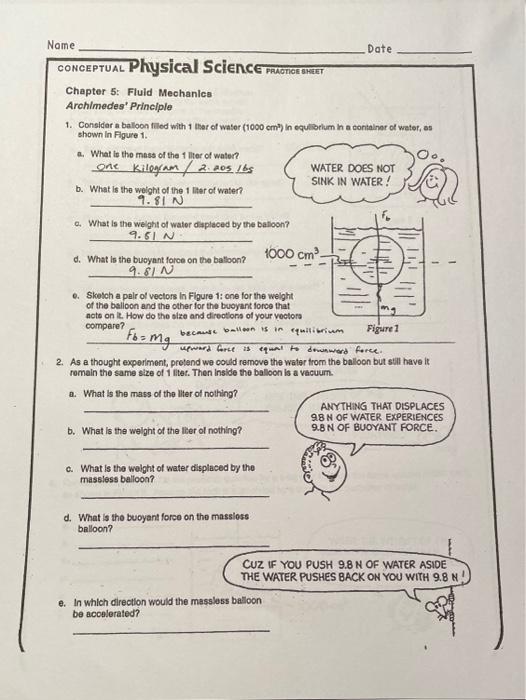 Name Date
CONCEPTUAL Physical Science PRACTICE SHEET
Chapter 5: Fluid Mechanics
Archimedes' Principle
1. Consider a balloon filled with 1 liter of water (1000 cm³) in equilibrium in a container of water, as
shown in Figure 1.
a. What is the mass of the 1 liter of water?
One Kilogram / 2.205 lbs
b. What is the weight of the 1 liter of water?
9.81 N
c. What is the weight of water displaced by the balloon?
9.81 N
d. What is the buoyant force on the balloon?
9.81 N
WATER DOES NOT
SINK IN WATER!
Fb
1000 cm³
mg
Figure 1
e. Sketch a pair of vectors in Figure 1: one for the weight
of the balloon and the other for the buoyant force that
acts on it. How do the size and directions of your vectors
compare?
Fb = Mg because balloon is in equilibrium
upward force is equal to downward force.
2. As a thought experiment, pretend we could remove the water from the balloon but still have it
remain the same size of 1 liter. Then inside the balloon is a vacuum.
a. What is the mass of the liter of nothing?
b. What is the weight of the liter of nothing?
ANYTHING THAT DISPLACES
9.8 N OF WATER EXPERIENCES
9.8 N OF BUOYANT FORCE.
c. What is the weight of water displaced by the
massless balloon?
d. What is the buoyant force on the massless
balloon?
CUZ IF YOU PUSH 9.8 N OF WATER ASIDE
THE WATER PUSHES BACK ON YOU WITH 9.8 N!
e. In which direction would the massless balloon
be accelerated?